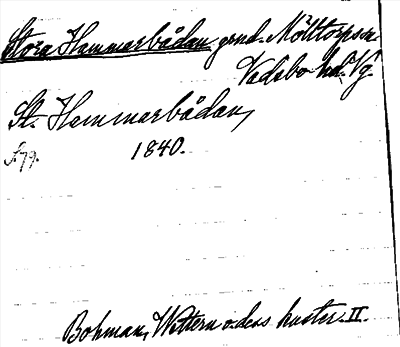 Stora Hammarbådan, grnd. Mölltorps sn
Vadsbo hd. Vg.
St. Hammarbådan,
s. 79. 1840.
Bohman, Wettern o. dess kuster II.